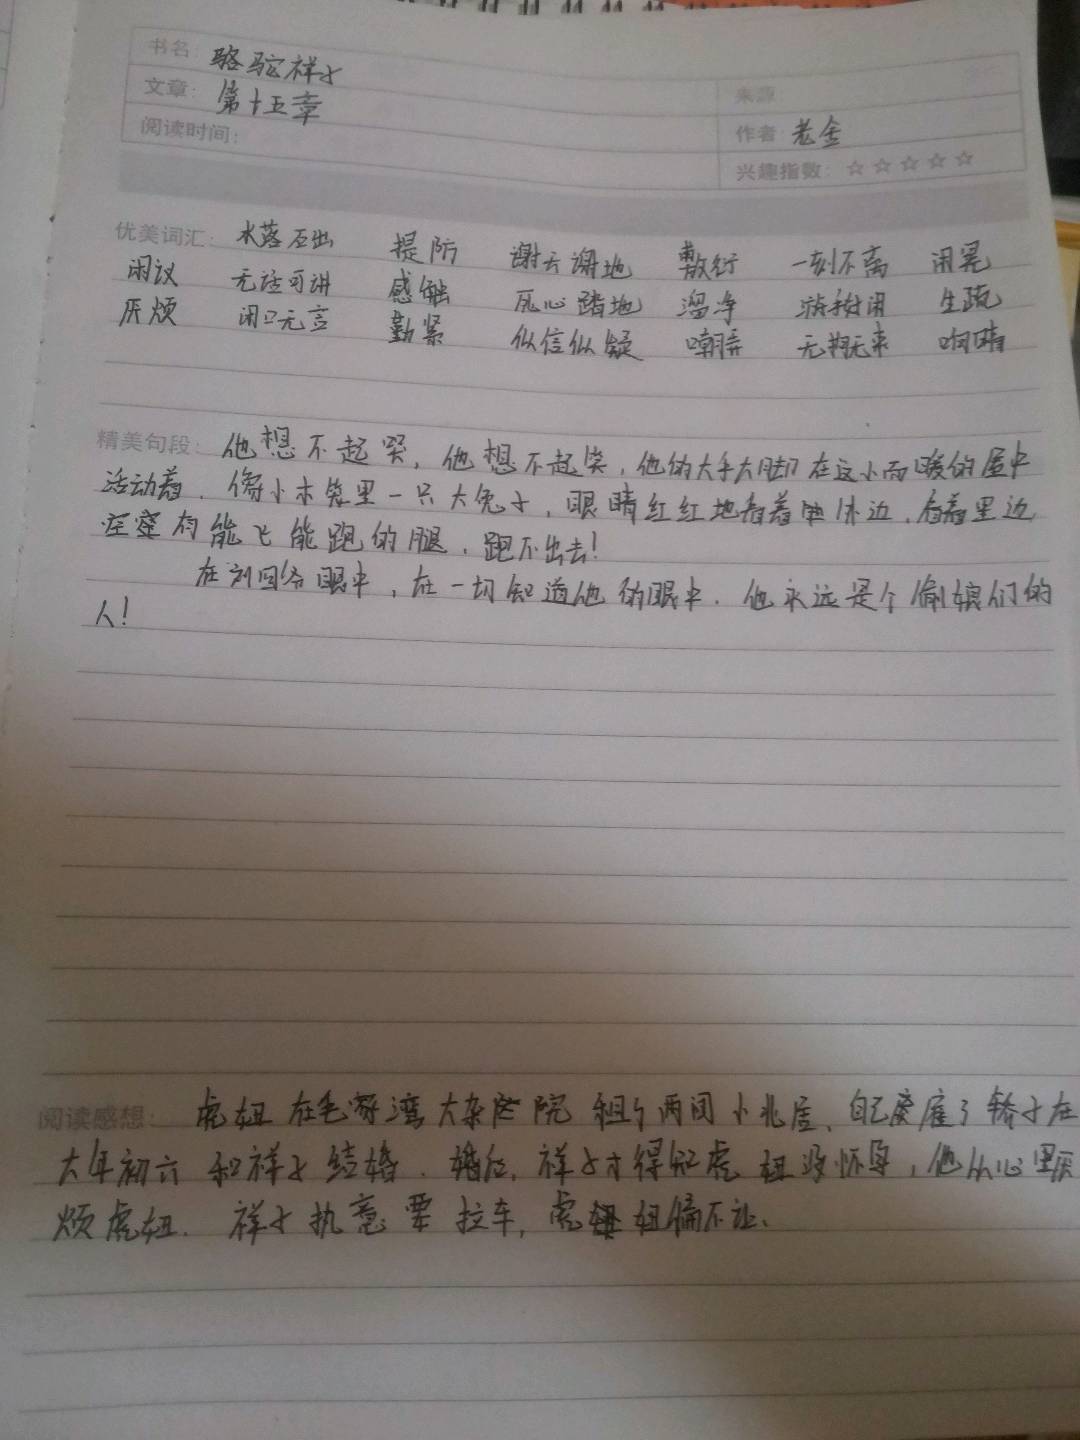 书名: 骆驼祥子
文章: 第十五章
来源
阅读时间:
作者 老舍
兴趣指数: ☆☆☆☆☆
优美词汇: 水落石出 提防 谢天谢地 敷衍 一刻不离 闲晃
闲议 无话可讲 感触 死心踏地 溜净 游手好闲 生疏
厌烦 闭口无言 勤紧 似信似疑 嘲弄 无拘无束 响晴
精美句段: 他想不起哭, 他想不起笑, 他的大手大脚在这小而暖的屋中
活动着, 像小木笼里一只大兔子, 眼睛红红地看着外边, 看着里边,
空有能飞能跑的腿, 跑不出去!
在刘四爷眼中, 在一切知道他的眼中, 他永远是个偷娘们的
人!
阅读感想: 虎妞在毛家湾大杂院租了两间小北屋, 自己雇了轿子在
大年初六和祥子结婚. 婚后, 祥子才得知虎妞没怀孕, 他从心里厌
烦虎妞. 祥子执意要拉车, 虎妞偏不让.